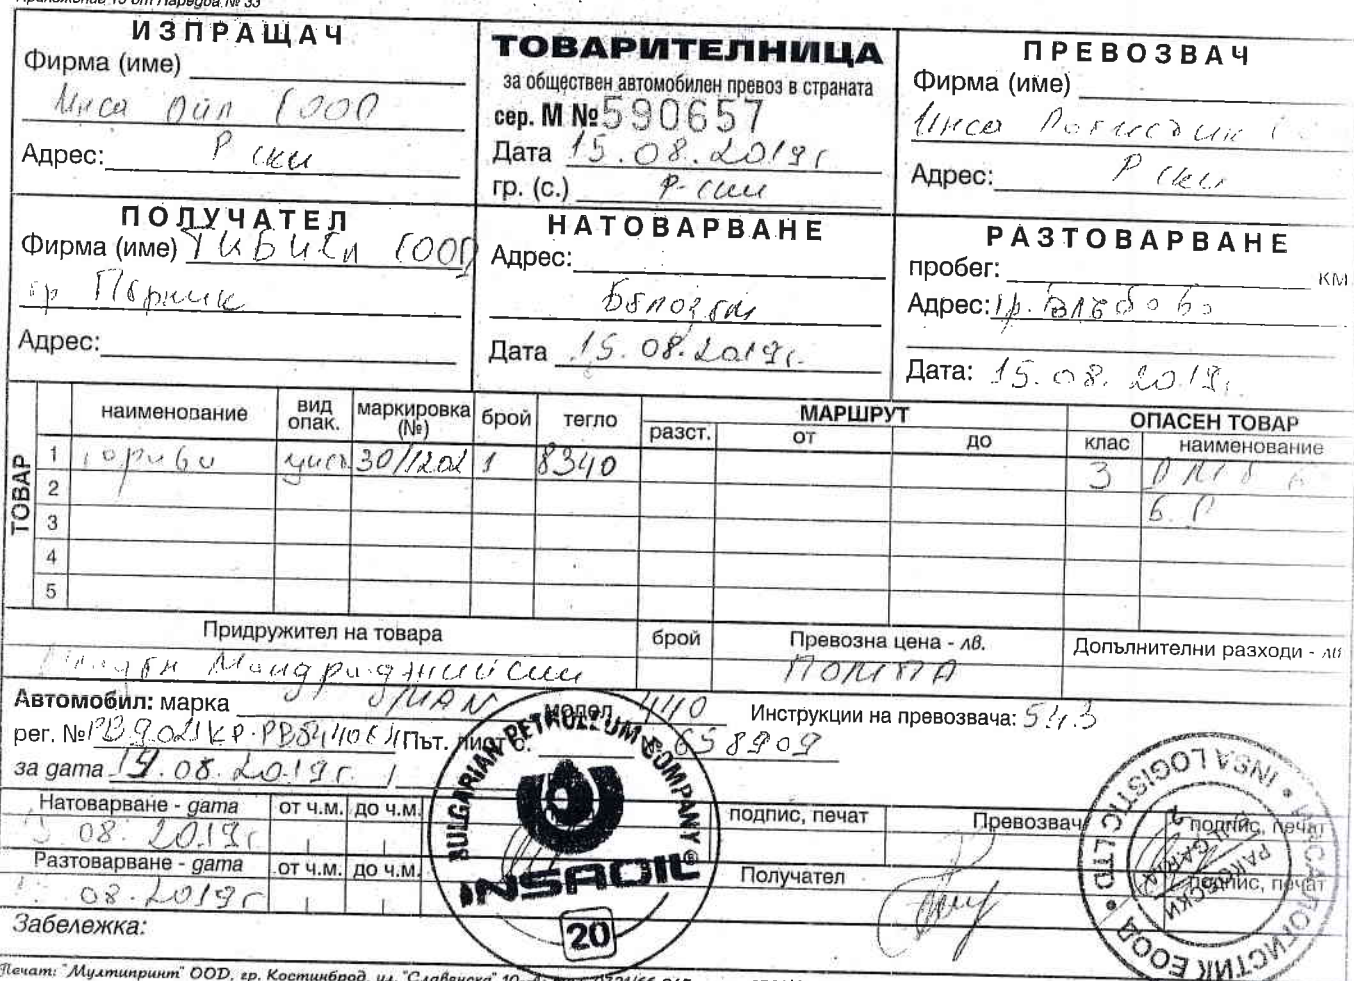 Приложение 10 от Наредба № 33
ИЗПРАЩАЧ
Фирма (име)
Инса Оил ЕООД
Адрес: Р ски
ТОВАРИТЕЛНИЦА
за обществен автомобилен превоз в страната
сер. М № 590657
Дата 15.08.2019 г
гр. (с.) Р-ски
ПРЕВОЗВАЧ
Фирма (име)
Инса Логистик
Адрес: Р ски
ПОЛУЧАТЕЛ
Фирма (име)
гр Перник
Адрес:
НАТОВАРВАНЕ
Адрес:
Белозем
Дата 15.08.2019 г.
РАЗТОВАРВАНЕ
пробег: км
Адрес: гр.
Дата: 15.08.2019 г.
ТОВАР
наименование вид опак. маркировка (№) брой тегло МАРШРУТ ОПАСЕН ТОВАР
разст. от до клас наименование
1 гориво цист 30/1202 1 8340 3
2
3
4
5
Придружител на товара брой Превозна цена - лв. Допълнителни разходи - лв
Автомобил: марка MAN модел 440 Инструкции на превозвача: 543
рег. № Път. лист с. 658909
за дата 15.08.2019 г.
Натоварване - дата от ч.м. до ч.м. подпис, печат Превозвач подпис, печат
08.2019 г
Разтоварване - дата от ч.м. до ч.м. Получател подпис, печат
08.2019 г
Забележка:
BULGARIAN PETROLEUM COMPANY
INSAOIL®
20
INSA LOGISTIC LTD • ИНСА ЛОГИСТИК ЕООД •
РАКОВСКИ
BULGARIA
2
Печат: "Мултипринт" ООД, гр. Костинброд, ул. "Славянска" 10